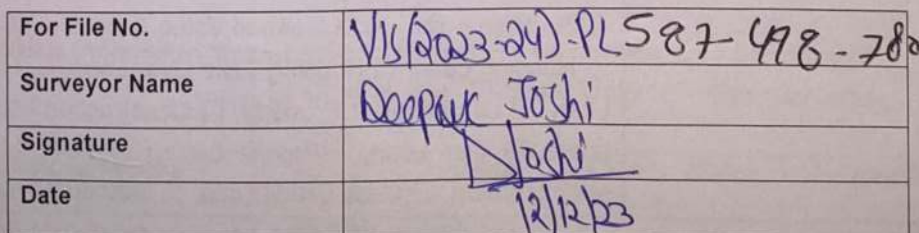 For File No. VIS(2023-24)-PL587-498-780
Surveyor Name Deepak Joshi
Signature DJoshi
Date 12/12/23